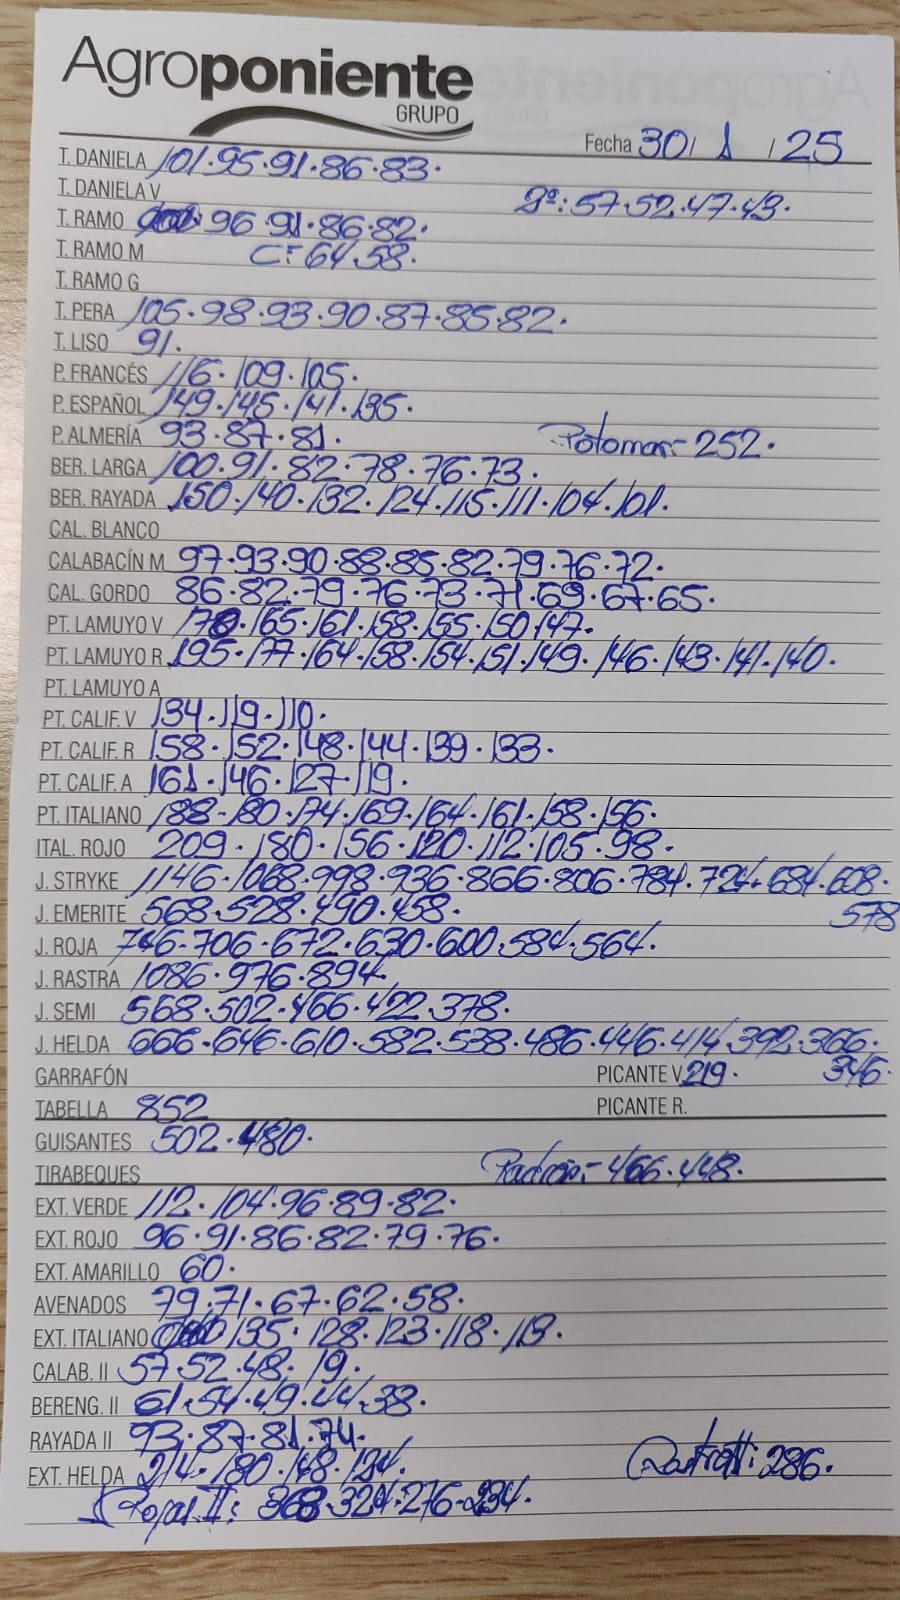 Agroponiente
GRUPO
Fecha 30/1/25
T. DANIELA 101.95.91.86.83.
T. DANIELA V 2ª:57.52.47.43.
T. RAMO 96.91.86.82.
T. RAMO M C=64.58.
T. RAMO G
T. PERA 105.98.93.90.87.85.82.
T. LISO 91.
P. FRANCÉS 116.109.105.
P. ESPAÑOL 149.145.141.135.
P. ALMERÍA 93.87.81. Potomar:-252.
BER. LARGA 100.91.82.78.76.73.
BER. RAYADA 150.140.132.124.115.111.104.101.
CAL. BLANCO
CALABACÍN M 97.93.90.88.85.82.79.76.72.
CAL. GORDO 86.82.79.76.73.71.69.67.65.
PT. LAMUYO V 170.165.161.158.155.150.147.
PT. LAMUYO R 195.177.164.158.154.151.149.146.143.141.140.
PT. LAMUYO A
PT. CALIF. V 134.119.110.
PT. CALIF. R 158.152.148.144.139.133.
PT. CALIF. A 161.146.127.119.
PT. ITALIANO 188.180.174.169.164.161.158.156.
ITAL. ROJO 209.180.156.120.112.105.98.
J. STRYKE 1146.1068.998.936.866.806.784.724.684.608.
J. EMERITE 568.528.490.458. 578
J. ROJA 746.706.672.630.600.584.564.
J. RASTRA 1086.976.894.
J. SEMI 568.502.466.422.378.
J. HELDA 666.646.610.582.538.486.446.414.392.366.
GARRAFÓN PICANTE V. 219. 346.
TABELLA 852 PICANTE R.
GUISANTES 502.480.
TIRABEQUES Padrón:-466.448.
EXT. VERDE 112.104.96.89.82.
EXT. ROJO 96.91.86.82.79.76.
EXT. AMARILLO 60.
AVENADOS 79.71.67.62.58.
EXT. ITALIANO 135.128.123.118.113.
CALAB. II 57.52.48.19.
BERENG. II 61.54.49.44.38.
RAYADA II 93.87.81.74.
EXT. HELDA 214.180.148.124. 286.
368.324.276.234.